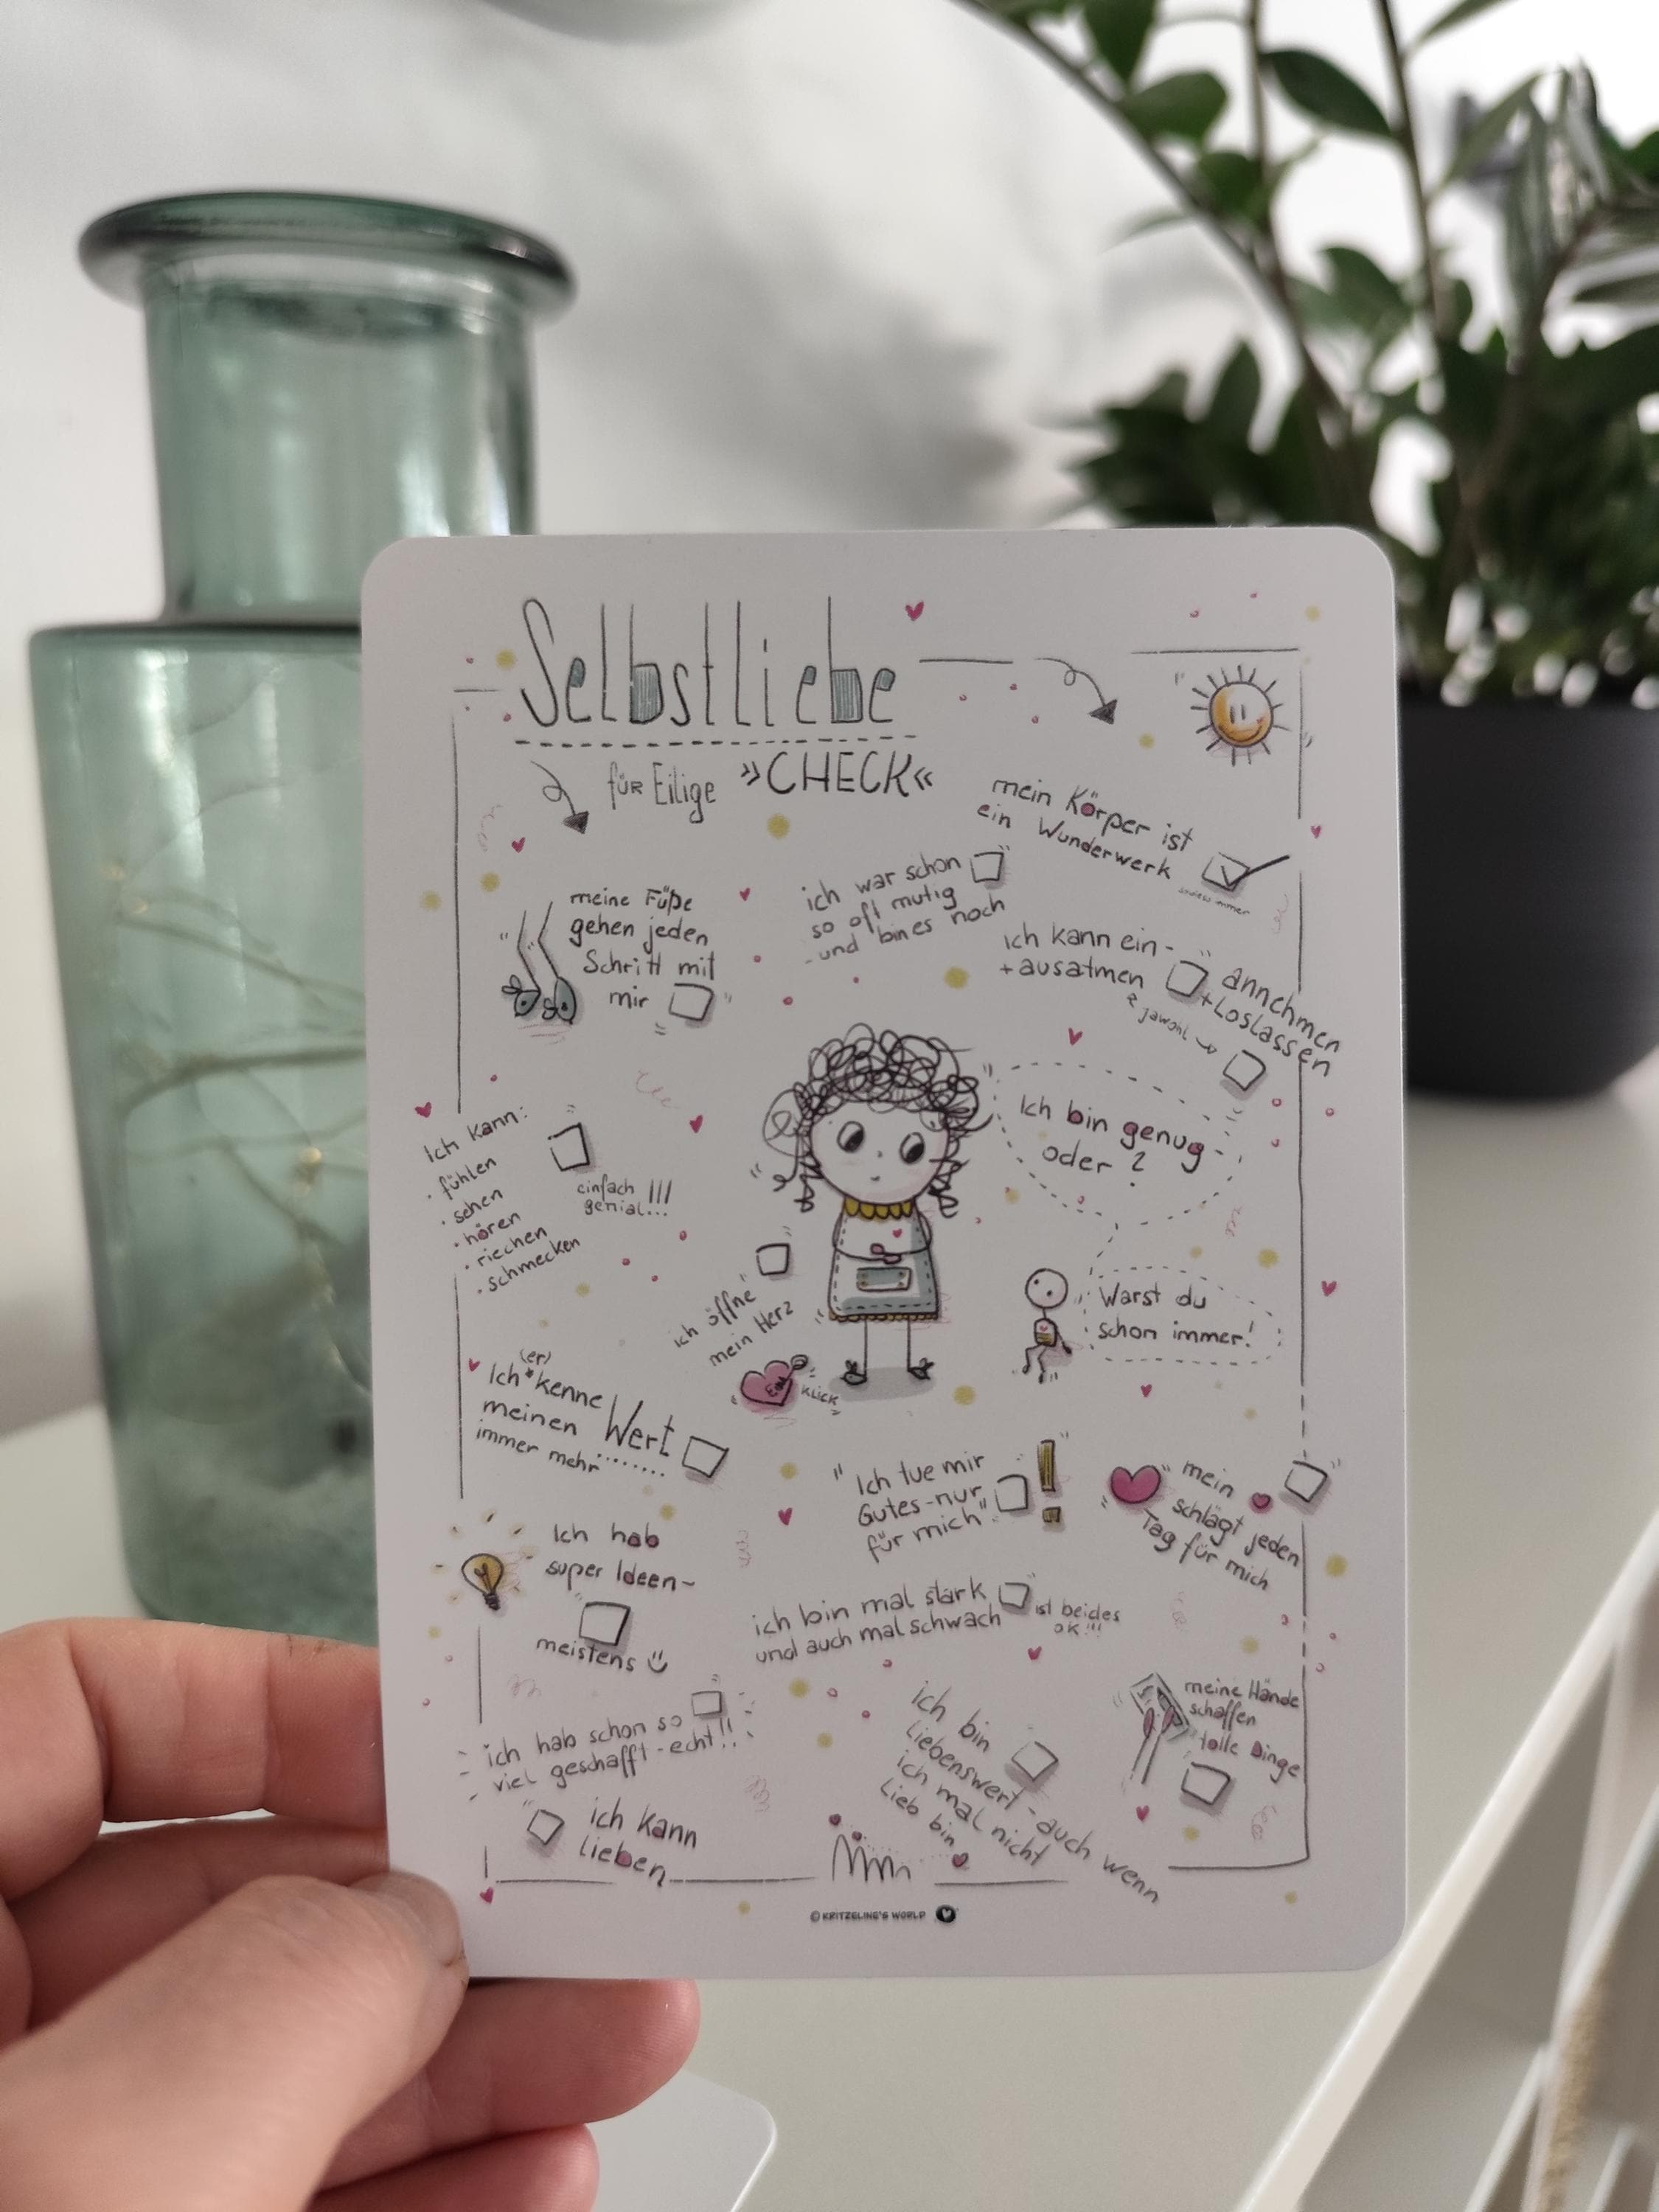 Selbstliebe
für Eilige »CHECK«
mein Körper ist
ein Wunderwerk
ich war schon
so oft mutig
- und bin es noch
meine Füße
gehen jeden
Schritt mit
mir
ich kann ein-
+ausatmen
annehmen
+Loslassen
jawohl
Ich bin genug-
oder?
Warst du
schon immer!
Ich kann:
· fühlen
· sehen
· hören
· riechen
· schmecken
einfach
genial...!!!
ich öffne
mein Herz
Klick
(er)
Ich*kenne
meinen Wert
immer mehr........
"Ich tue mir
Gutes-nur
für mich"
!
mein
schlägt jeden
Tag für mich
Ich hab
super Ideen-
meistens
ich bin mal stark
und auch mal schwach
ist beides
OK!!!
ich hab schon so
viel geschafft-echt!!
meine Hände
schaffen
tolle Dinge
ich bin
liebenswert-auch wenn
ich mal nicht
lieb bin
ich kann
lieben
© KRITZELINE'S WORLD